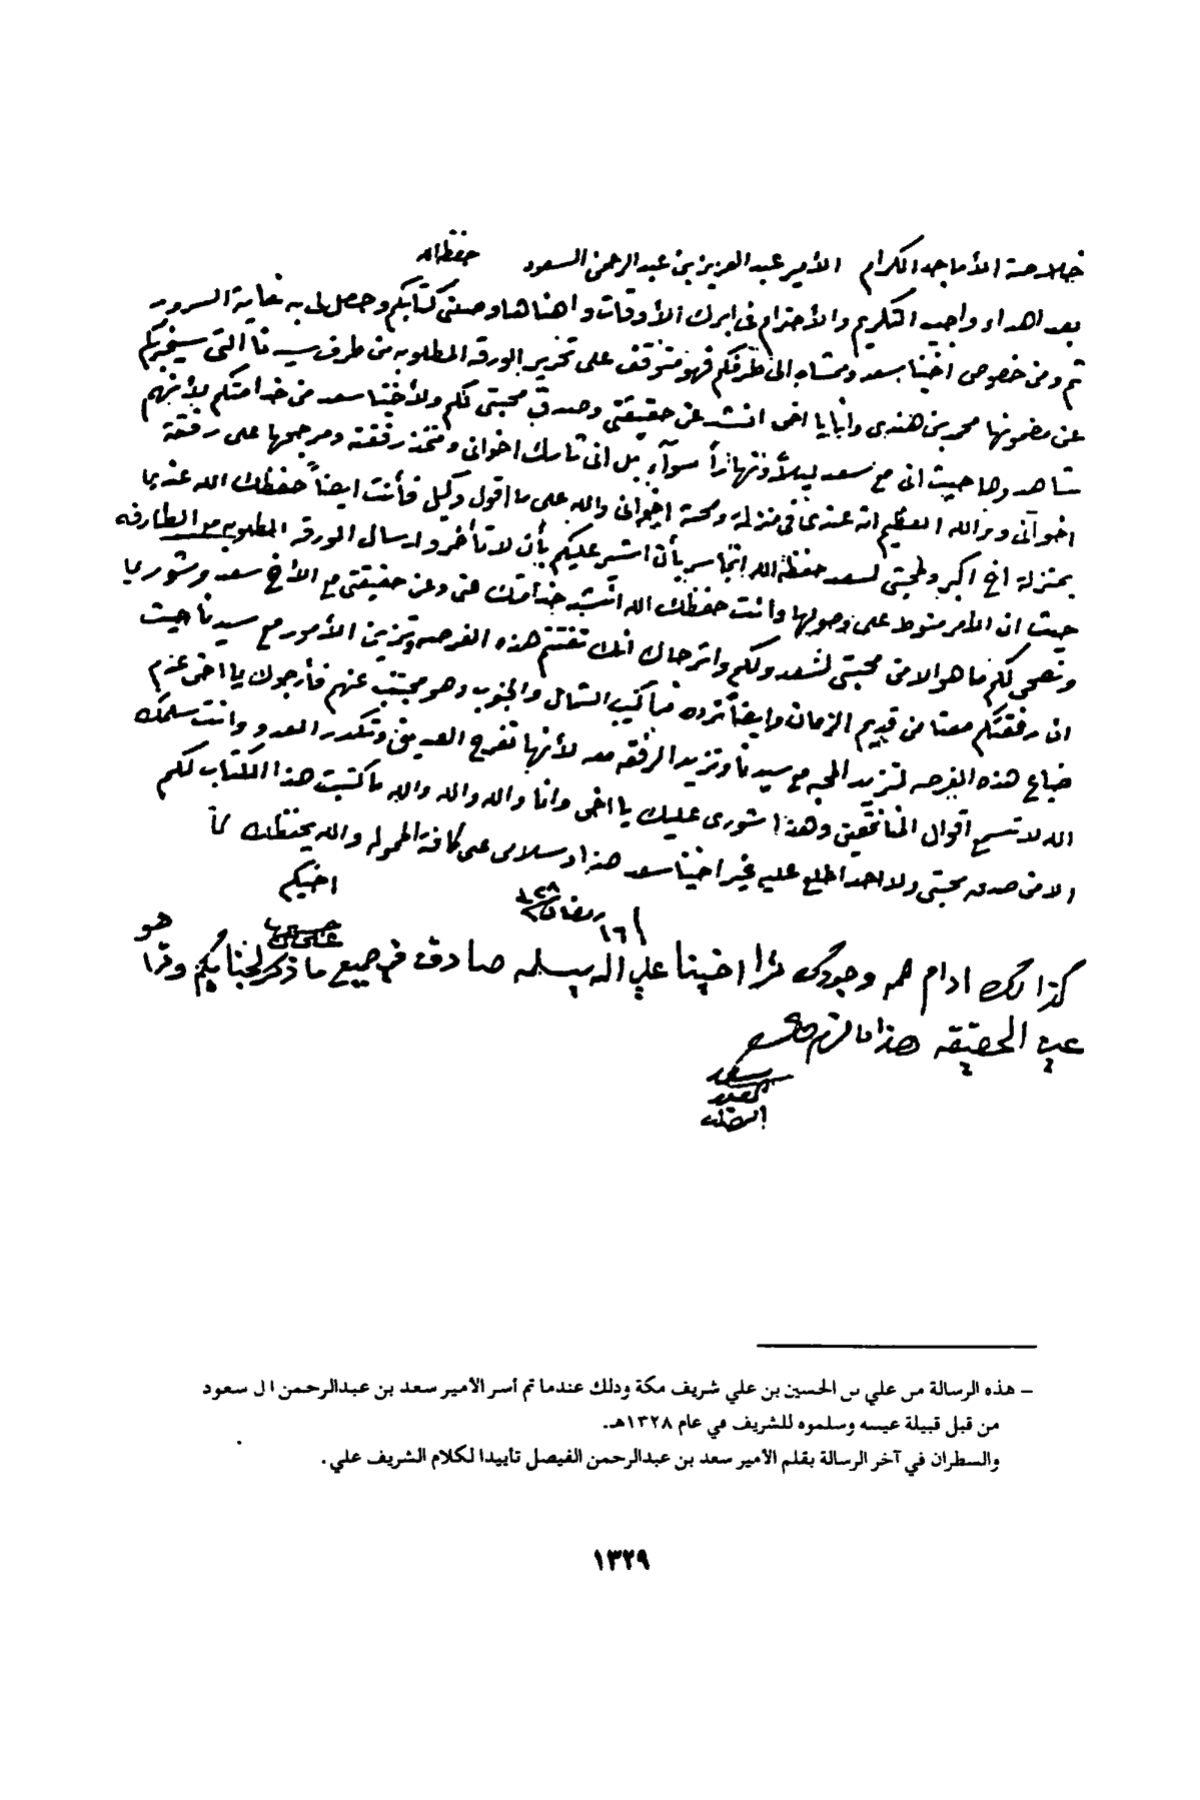 خلاصة الأماجد الكرام الأمير عبد العزيز بن عبد الرحمن السعود حفظه الله
بعد اهداء واجب التكريم والأحترام في ابرك الأوقات واهناها وصلني كتابكم وحصل لي به غاية السرور
ثم ومن خصوص اخينا سعد وممشاه الى طرفكم فهو متوقف على تحرير الورقه المطلوبه من طرف سيدنا التي سيخبركم
عن مضمونها محمد بن هندي وانا يا اخي انشد عن حقيقتي وصدق محبتي لكم ولأخينا سعد من خدامتكم لأنهم
شاهدوها حيث اني مع سعد ليلاً ونهاراً سوآء بل اني تارك اخواني ومتخذ رفقته ومرجحها على رفقة
اخواني والله العظيم انه عندي في منزلة ومحبة اخواني والله على ما اقول وكيل فأنت ايضاً حفظك الله عندي
بمنزلة اخ اكبر ولمحبتي لسعد حفظه الله اتجاسر بأن اشير عليكم بأن لا تأخروا ارسال الورقه المطلوبه مع الطارفه
حيث ان الأمر منوط على وصولها وانت حفظك الله انشد خدامك عني وعن حقيقتي مع الأخ سعد وشوري
ونصحي لكم ما هو الا من محبتي لسعد ولكم واترجاك انك تغتنم هذه الفرصه وتزين الأمور مع سيدنا حيث
ان رفقتكم معنا من قديم الزمان وايضاً ترده مناكيب الشمال والجنوب وهو مجتنب عنهم فأرجوك يا اخي عدم
ضياع هذه الفرصه لتزيد المحبه مع سيدنا وتزيد الرفقه معه لأنها تفرح الصديق وتكدر العدو وانت سلمك
الله لا تسمع اقوال المنافقين وهذا شوري عليك يا اخي وانا والله والله والله ما كتبت هذا الكتاب لكم
الا من صدق محبتي ولا احد اطلع عليه غير اخينا سعد هذا وسلامي على كافة الحموله والله يحفظك
١٦ رمضان ٣٢٨ اخيكم
علي
كذالك ادام الله وجودك نرا اخينا علي الله يسلمه صادق في جميع ما ذكر لجنابكم وترا هو
عين الحقيقه هذا ما لزم
سعد
الفيصل
– هذه الرسالة من علي بن الحسين بن علي شريف مكة وذلك عندما تم أسر الأمير سعد بن عبدالرحمن ال سعود
من قبل قبيلة عتيبه وسلموه للشريف في عام ١٣٢٨هـ.
والسطران في آخر الرسالة بقلم الأمير سعد بن عبدالرحمن الفيصل تأييدا لكلام الشريف علي.
١٣٢٩